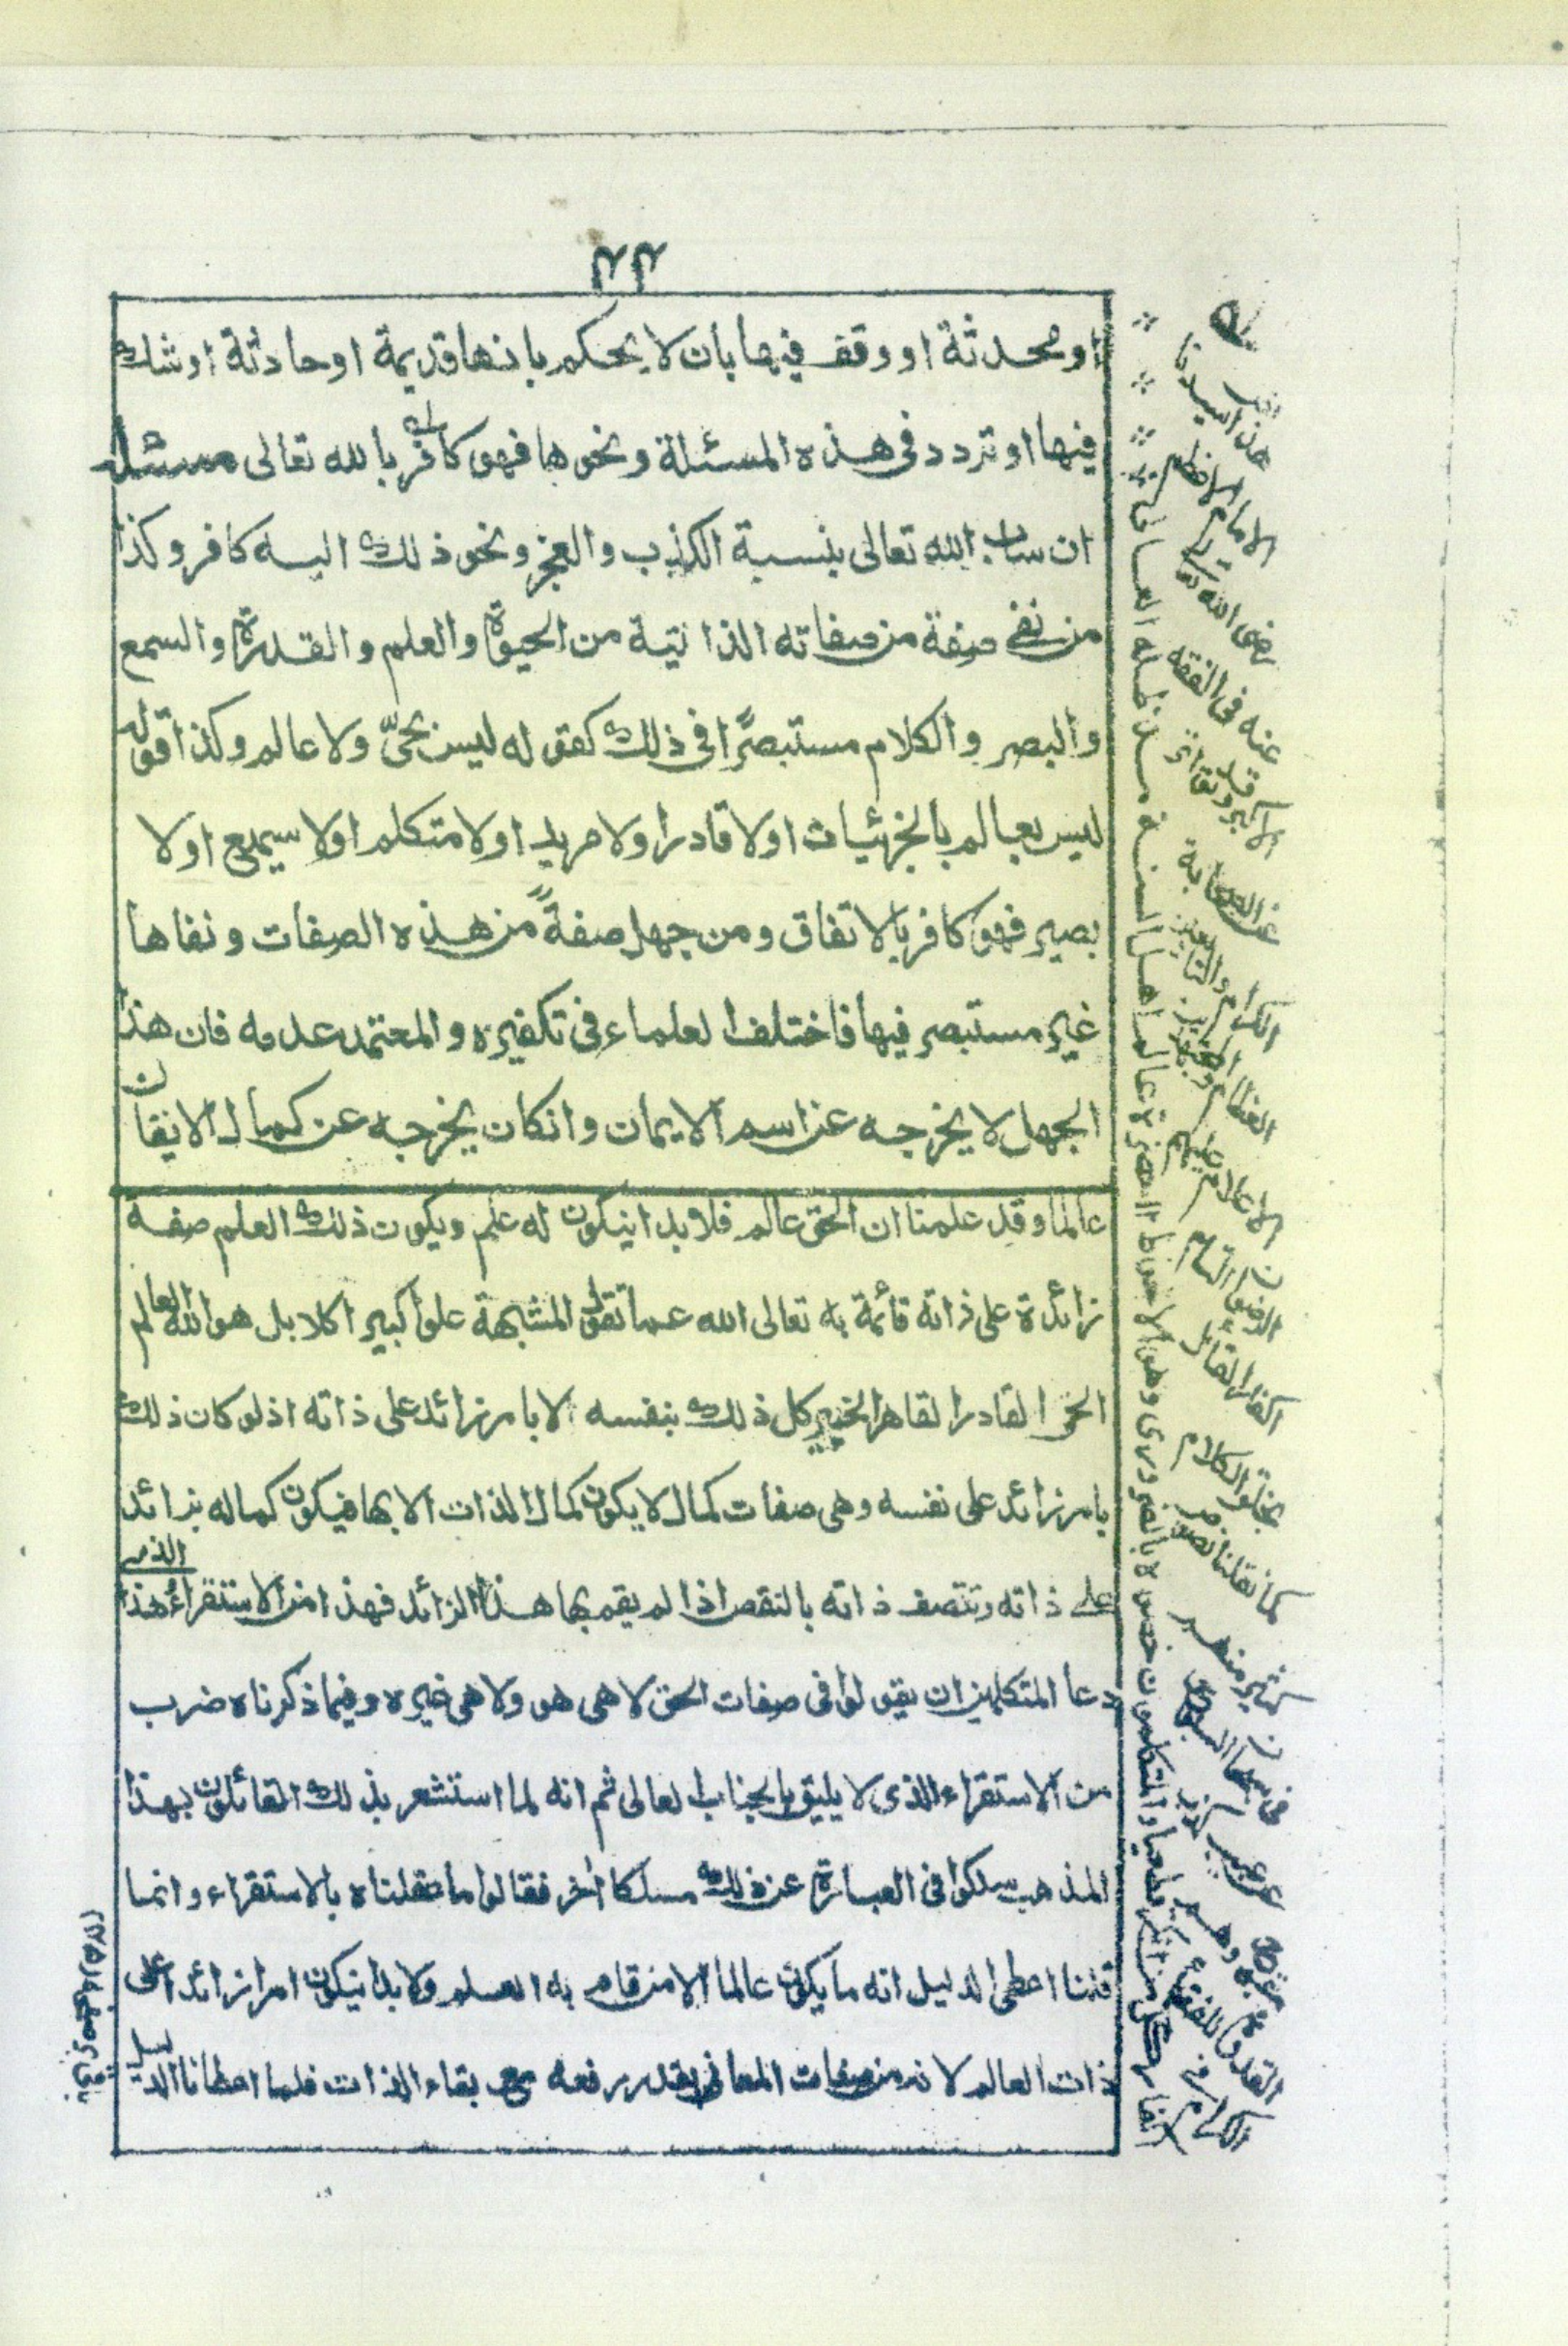 ٢٣
او محدثة او وقف فيها بأن لا يحكم بانها قديمة او حادثة او شك
فيها او تردد فى هذه المسئلة ونحوها فهو كافر بالله تعالى مسئله
ان ساب الله تعالى بنسبة الكذب والعجز ونحو ذلك اليه كافر وكذا
من نفى صفة من صفاته الذاتية من الحيوة والعلم والقدرة والسمع
والبصر والكلام مستبصرًا فى ذلك كقوله ليس بحىّ ولا عالم وكذا قوله
ليس بعالم بالجزئيات اولا قادر اولا مريد اولا متكلم اولا سميع اولا
بصير فهو كافر بالاتفاق ومن جهل صفةً من هذه الصفات ونفاها
غير مستبصر فيها فاختلف العلماء فى تكفيره والمعتمد عدمه فان هذا
الجهل لا يخرجه عن اسم الايمان وانكان يخرجه عن كمال الايقان
عالما وقد علمنا ان الحق عالم فلابد اينكون له علم ويكون ذلك العلم صفة
زائدة على ذاته قائمة به تعالى الله عما تقول المشبهة علوا كبيرا كلا بل هو الله العالم
الحى القادر القاهر الخبير كل ذلك بنفسه لا بامر زائد على ذاته اذ لو كان ذلك
بامر زائد على نفسه وهى صفات كمال لا يكون كمال الذات الا بها فيكون كماله بزائد
على ذاته وتتصف ذاته بالنقص اذا لم يقم بها هذا الزائد فهذا من الاستقراء هذا الذى
دعا المتكلمين ان يقولوا فى صفات الحق لا هى هو ولا هى غيره وفيما ذكرناه ضرب
من الاستقراء الذى لا يليق بالجناب العالى ثم انه لما استشعر بذلك القائلون بهذا
المذهب سلكوا فى العبارة عن ذلك مسلكا اخر فقالوا ما عقلناه بالاستقراء وانما
قلنا اعطى الدليل انه ما يكون عالما الا من قام به العلم ولابد انيكون امرا زائدا على
ذات العالم لانه من صفات المعانى يقدر رفعه مع بقاء الذات فلما اعطانا الدليل
هذا سيدنا
الامام الاعظم
رضى الله تعالى
عنه فى الفقه
الاكبر
عن الصحابة
الكرام والتابعين
العظام
الاعلام عليهم
الرضوان التام
اكفار القائل
بخلق الكلام
كما نقلنا نصوص
كثير منهم
فى سبحان السبوح
عن عيب كذب
مقبوح وهم
القدوة للفقهاء
الكرام فى
اكفار كل من انكر قطعيا والمتكلمون خصوه بالضرورى وهو الاحوط